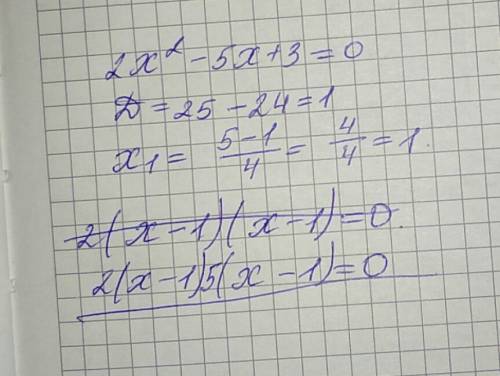 2x² - 5x + 3 = 0
D = 25 - 24 = 1
x₁ = (5-1)/4 = 4/4 = 1.
2(x-1)(x-1)=0.
2(x-1)5(x-1)=0